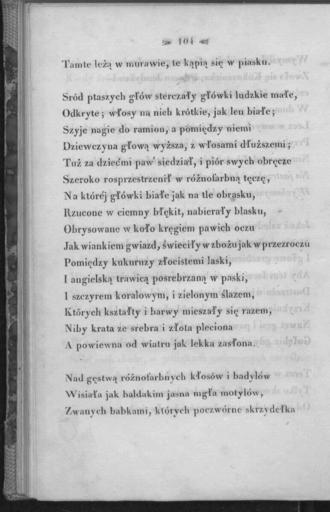 104
Tamte leżą w murawie, te kąpią się w piasku.
Śród ptaszych głów sterczały główki ludzkie małe,
Odkryte; włosy na nich krótkie, jak len białe;
Szyje nagie do ramion, a pomiędzy niemi
Dziewczyna głową wyższa, z włosami dłuższemi;
Tuż za dziećmi paw' siedział, i piór swych obręcze
Szeroko rozprzestrzenił w różnofarbną tęczę,
Na której główki białe jak na tle obrasku,
Rzucone w ciemny błękit, nabierały blasku,
Obrysowane w koło kręgiem pawich oczu
Jak wiankiem gwiazd, świeciły w zbożu jak w przezroczu
Pomiędzy kukuruzy złocistemi laski,
I angielską trawicą posrebrzaną w paski,
I szczyrem koralowym, i zielonym ślazem,
Których kształty i barwy mieszały się razem,
Niby krata ze srebra i złota pleciona
A powiewna od wiatru jak lekka zasłona.
Nad gęstwą różnofarbnych kłosów i badylów
Wisiała jak baldakim jasna mgła motylów,
Zwanych babkami, których poczwórne skrzydełka